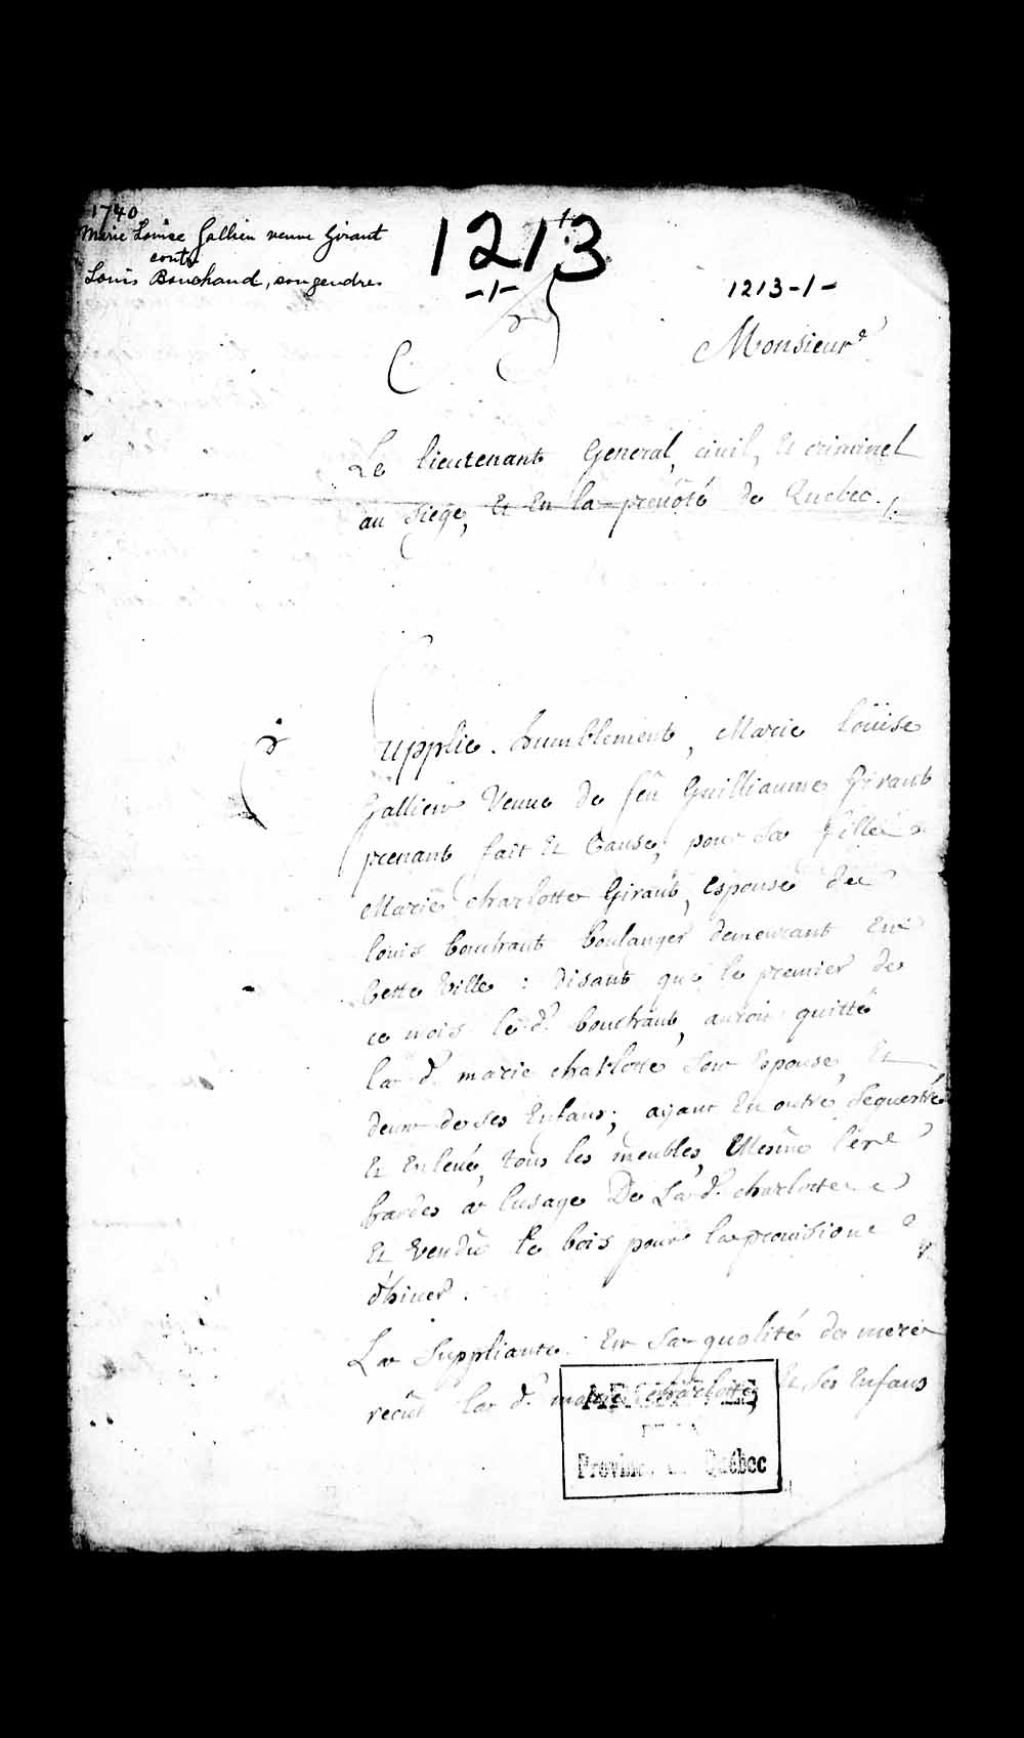 1740
Marie Louise Gallien veuve Giraut
contre
Louis Bouchaud, son gendre
1213
-1-
1213-1-
Monsieur
Le lieutenant General, civil, Et criminel
au siege, Et En la prevôté de Quebec ./.
Supplie humblement, Marie loüise
Gallien Veuve de feû Guilliaume Giraut
prenant fait Et Cause, pour sa fille
Marie charlotte Giraut, Espouse de
louis bouchaut boulanger demeurant En
Cette Ville : disant que le premier de
ce mois le d. bouchaut, auroit quitté
la d. marie charlotte son Espouse, Et
deux de ses Enfans; ayant En outre sequestré
Et Enlevé, tous les meubles, Mesme les
hardes a lusage De La d. charlotte
Et Vendû le bois pour la provision
d'hiver.
La Suppliante En sa qualité de mere
recût la d. marie charlotte, Et ses Enfans
ARCHIVES
DE LA
Province de Québec